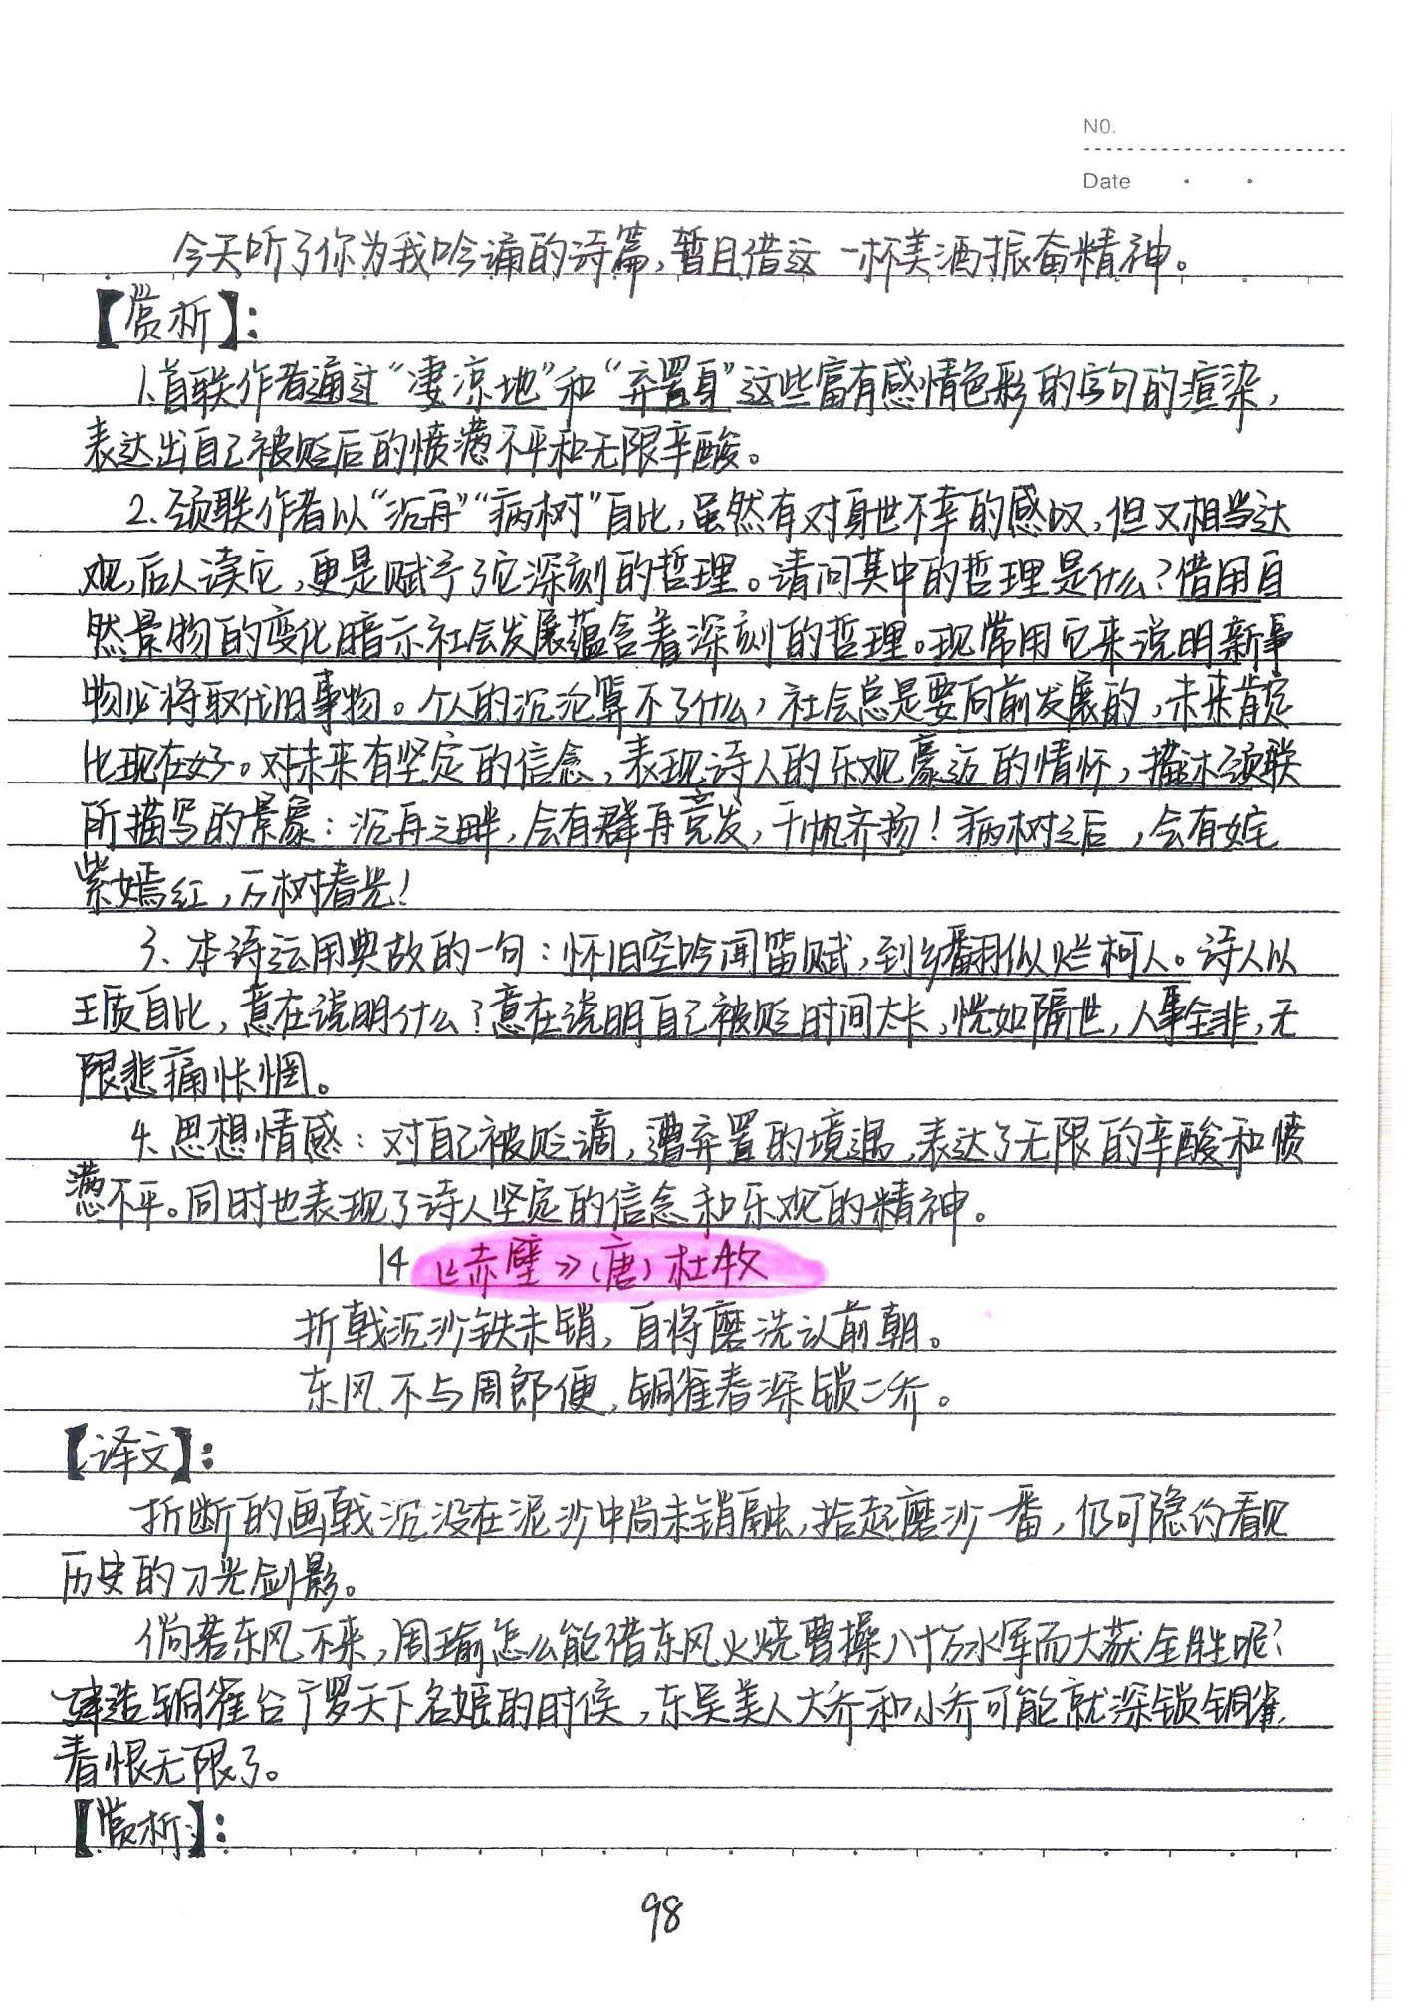 NO.
Date
今天听了你为我吟诵的诗篇,暂且借这一杯美酒振奋精神。
【赏析】:
1.首联作者通过“凄凉地”和“弃置身”这些富有感情色彩的字句的渲染,
表达出自己被贬后的愤懑不平和无限辛酸。
2.颔联作者以“沉舟”“病树”自比,虽然有对身世不幸的感叹,但又相当达
观,后人读它,更是赋予了它深刻的哲理。请问其中的哲理是什么?借用自
然景物的变化暗示社会发展蕴含着深刻的哲理。现常用它来说明新事
物必将取代旧事物。个人的沉沦算不了什么,社会总是要向前发展的,未来肯定
比现在好。对未来有坚定的信念,表现诗人的乐观豪迈的情怀,描述颔联
所描写的景象:沉舟之畔,会有群舟竞发,千帆齐扬!病树之后,会有姹
紫嫣红,万树春光!
3、本诗运用典故的一句:怀旧空吟闻笛赋,到乡翻似烂柯人。诗人以
王质自比,意在说明什么?意在说明自己被贬时间太长,恍如隔世,人事全非,无
限悲痛怅惘。
4.思想情感:对自己被贬谪,遭弃置的境遇,表达了无限的辛酸和愤
懑不平。同时也表现了诗人坚定的信念和乐观的精神。
14《赤壁》(唐)杜牧
折戟沉沙铁未销,自将磨洗认前朝。
东风不与周郎便,铜雀春深锁二乔。
【译文】:
折断的画戟沉没在泥沙中尚未销融,拾起磨沙一番,仍可隐约看见
历史的刀光剑影。
倘若东风不来,周瑜怎么能借东风火烧曹操八十万水军而大获全胜呢?
建造铜雀台广罗天下名姬的时候,东吴美人大乔和小乔可能就深锁铜雀,
春恨无限了。
【赏析】:
98